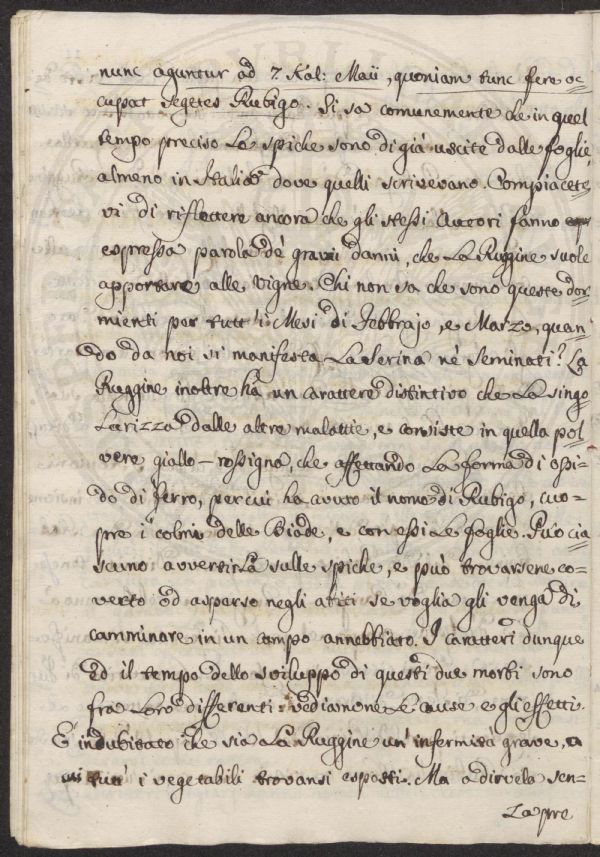 nunc aguntur ad 7. Kal: Maii, quoniam tunc fere oc=
cupat segetes Rubigo. Si sa comunemente che in quel
tempo preciso La spiche sono di già uscite dalle foglie,
almeno in Italia dove quelli scrivevano. Compiacete=
vi di riflettere ancora che gli stessi Autori fanno
espressa parola de' gravi danni, che La Ruggine suole
apportare alle vigne. Chi non sa che sono queste dor=
mienti per tutt' i Mesi di Febbrajo, e Marzo, quan=
do da noi si manifesta La Serina né Seminati? La
Ruggine inoltre hà un carattere distintivo che La singo=
Larizza dalle altre malattie, e consiste in quella pol=
vere giallo-rossigna, che affettando La forma di ossi=
do di Ferro, per cui ha avuto il nome di Rubigo, cuo=
pre i colmi delle Biade, e con essi Le foglie. Può cia=
scuno avvertirLa sulle spiche, e può trovarsene co=
verto ed asperso negli abiti se voglia gli venga di
camminare in un campo annebbiato. I caratteri dunque
ed il tempo dello sviluppo di questi due morbi sono
fra Loro differenti: vediamone Le cause e gli effetti.
E' indubitato che sia La Ruggine un' infermità grave, a
cui tutt' i vegetabili trovansi esposti. Ma a dirvela sen=
za pre